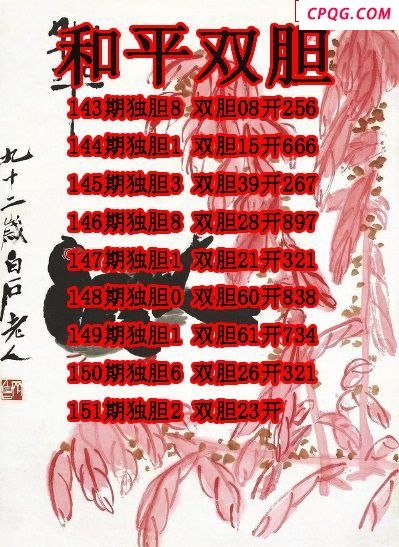 CPQG.COM
和平双胆
143期独胆8 双胆08开256
144期独胆1 双胆15开666
145期独胆3 双胆39开267
146期独胆8 双胆28开897
147期独胆1 双胆21开321
148期独胆0 双胆60开838
149期独胆1 双胆61开734
150期独胆6 双胆26开321
151期独胆2 双胆23开
九十二岁白石老人